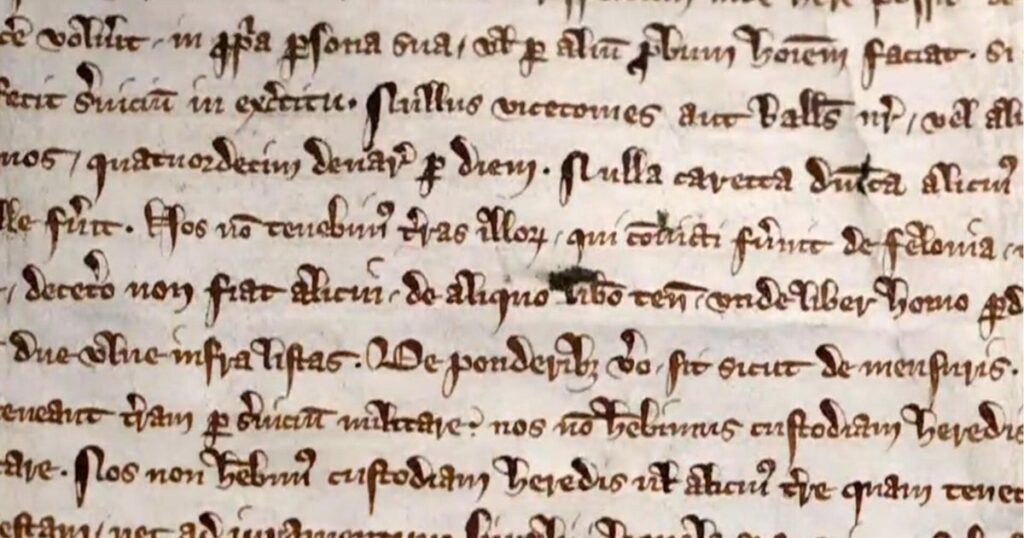 voluerit in propria persona sua, vel per alium probum hominem faciat. Si
fecit seruicium in exercitu. Nullus vicecomes aut Balls nr, vel ali
nos, quatuordecim denar p diem. Nulla caretta dnica alicui
fuerit. Nos no tenebim tras illor, qui couicti fuerint de felonia,
decetero non fiat alicui, de aliquo libo ten, vnde liber homo pd
due vlne infra listas. De ponderib vo sit sicut de mensuris.
teneant tram p suiciu militare, nos no hebimus custodiam heredis
Nos non hebim custodiam heredis vl alicui tre quam tenet
nec ad iuramentum